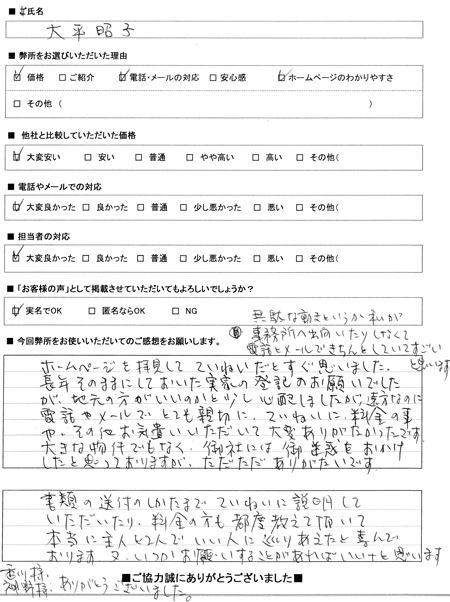 ■ お氏名
大平昭子
■ 弊所をお選びいただいた理由
☑ 価格 □ ご紹介 ☑ 電話・メールの対応 □ 安心感 ☑ ホームページのわかりやすさ
□ その他 ( )
■ 他社と比較していただいた価格
☑ 大変安い □ 安い □ 普通 □ やや高い □ 高い □ その他(
■ 電話やメールでの対応
☑ 大変良かった □ 良かった □ 普通 □ 少し悪かった □ 悪い □ その他(
■ 担当者の対応
☑ 大変良かった □ 良かった □ 普通 □ 少し悪かった □ 悪い □ その他(
■ 「お客様の声」として掲載させていただいてもよろしいでしょうか?
☑ 実名でOK □ 匿名ならOK □ NG
無駄な動きというか私が
事務所へ出向いたりしなくて
電話とメールできちんとしていてすごい
と思います
■ 今回弊所をお使いいただいてのご感想をお願いします。
ホームページを拝見して ていねいだとすぐ思いました。
長年そのままにしておいた実家の登記のお願いでした
が、地元の方がいいのかと少し心配しましたが、遠方なのに
電話やメールで とても親切に、ていねいに、料金の事
や、その他お気遣いいただいて大変ありがたかったです
大きな物件でもなく、御社には 御迷惑をおかけ
したと思っておりますが、ただただ ありがたいです
書類の送付のしかたまで ていねいに説明して
いただいたり、料金の方も都度教えて頂いて
本当に主人と2人で いい人に巡りあえたと喜んで
おります 又、いつかお願いすることがあればいいなと思います
様、
様、ありがとうございました。
■ご協力誠にありがとうございました■